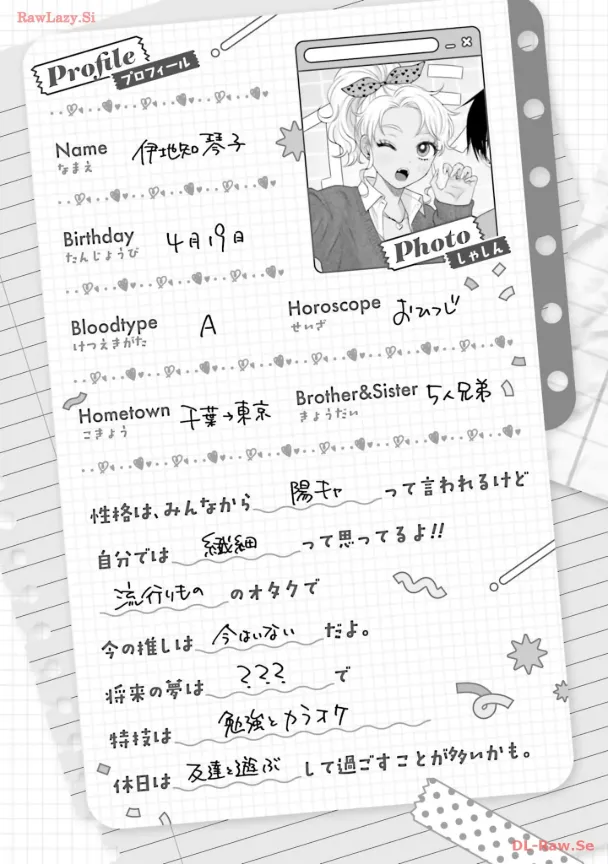 RawLazy.Si
Profile
プロフィール
Name 伊地知琴子
なまえ
Birthday 4月19日
たんじょうび
Photo
しゃしん
Bloodtype A
けつえきがた
Horoscope おひつじ
せいざ
Hometown 千葉→東京
こきょう
Brother&Sister 5人兄弟
きょうだい
性格は、みんなから陽キャって言われるけど
自分では繊細って思ってるよ!!
流行りもののオタクで
今の推しは今はいないだよ。
将来の夢は???で
特技は勉強とカラオケ
休日は友達と遊ぶして過ごすことが多いかも。
DL-Raw.Se